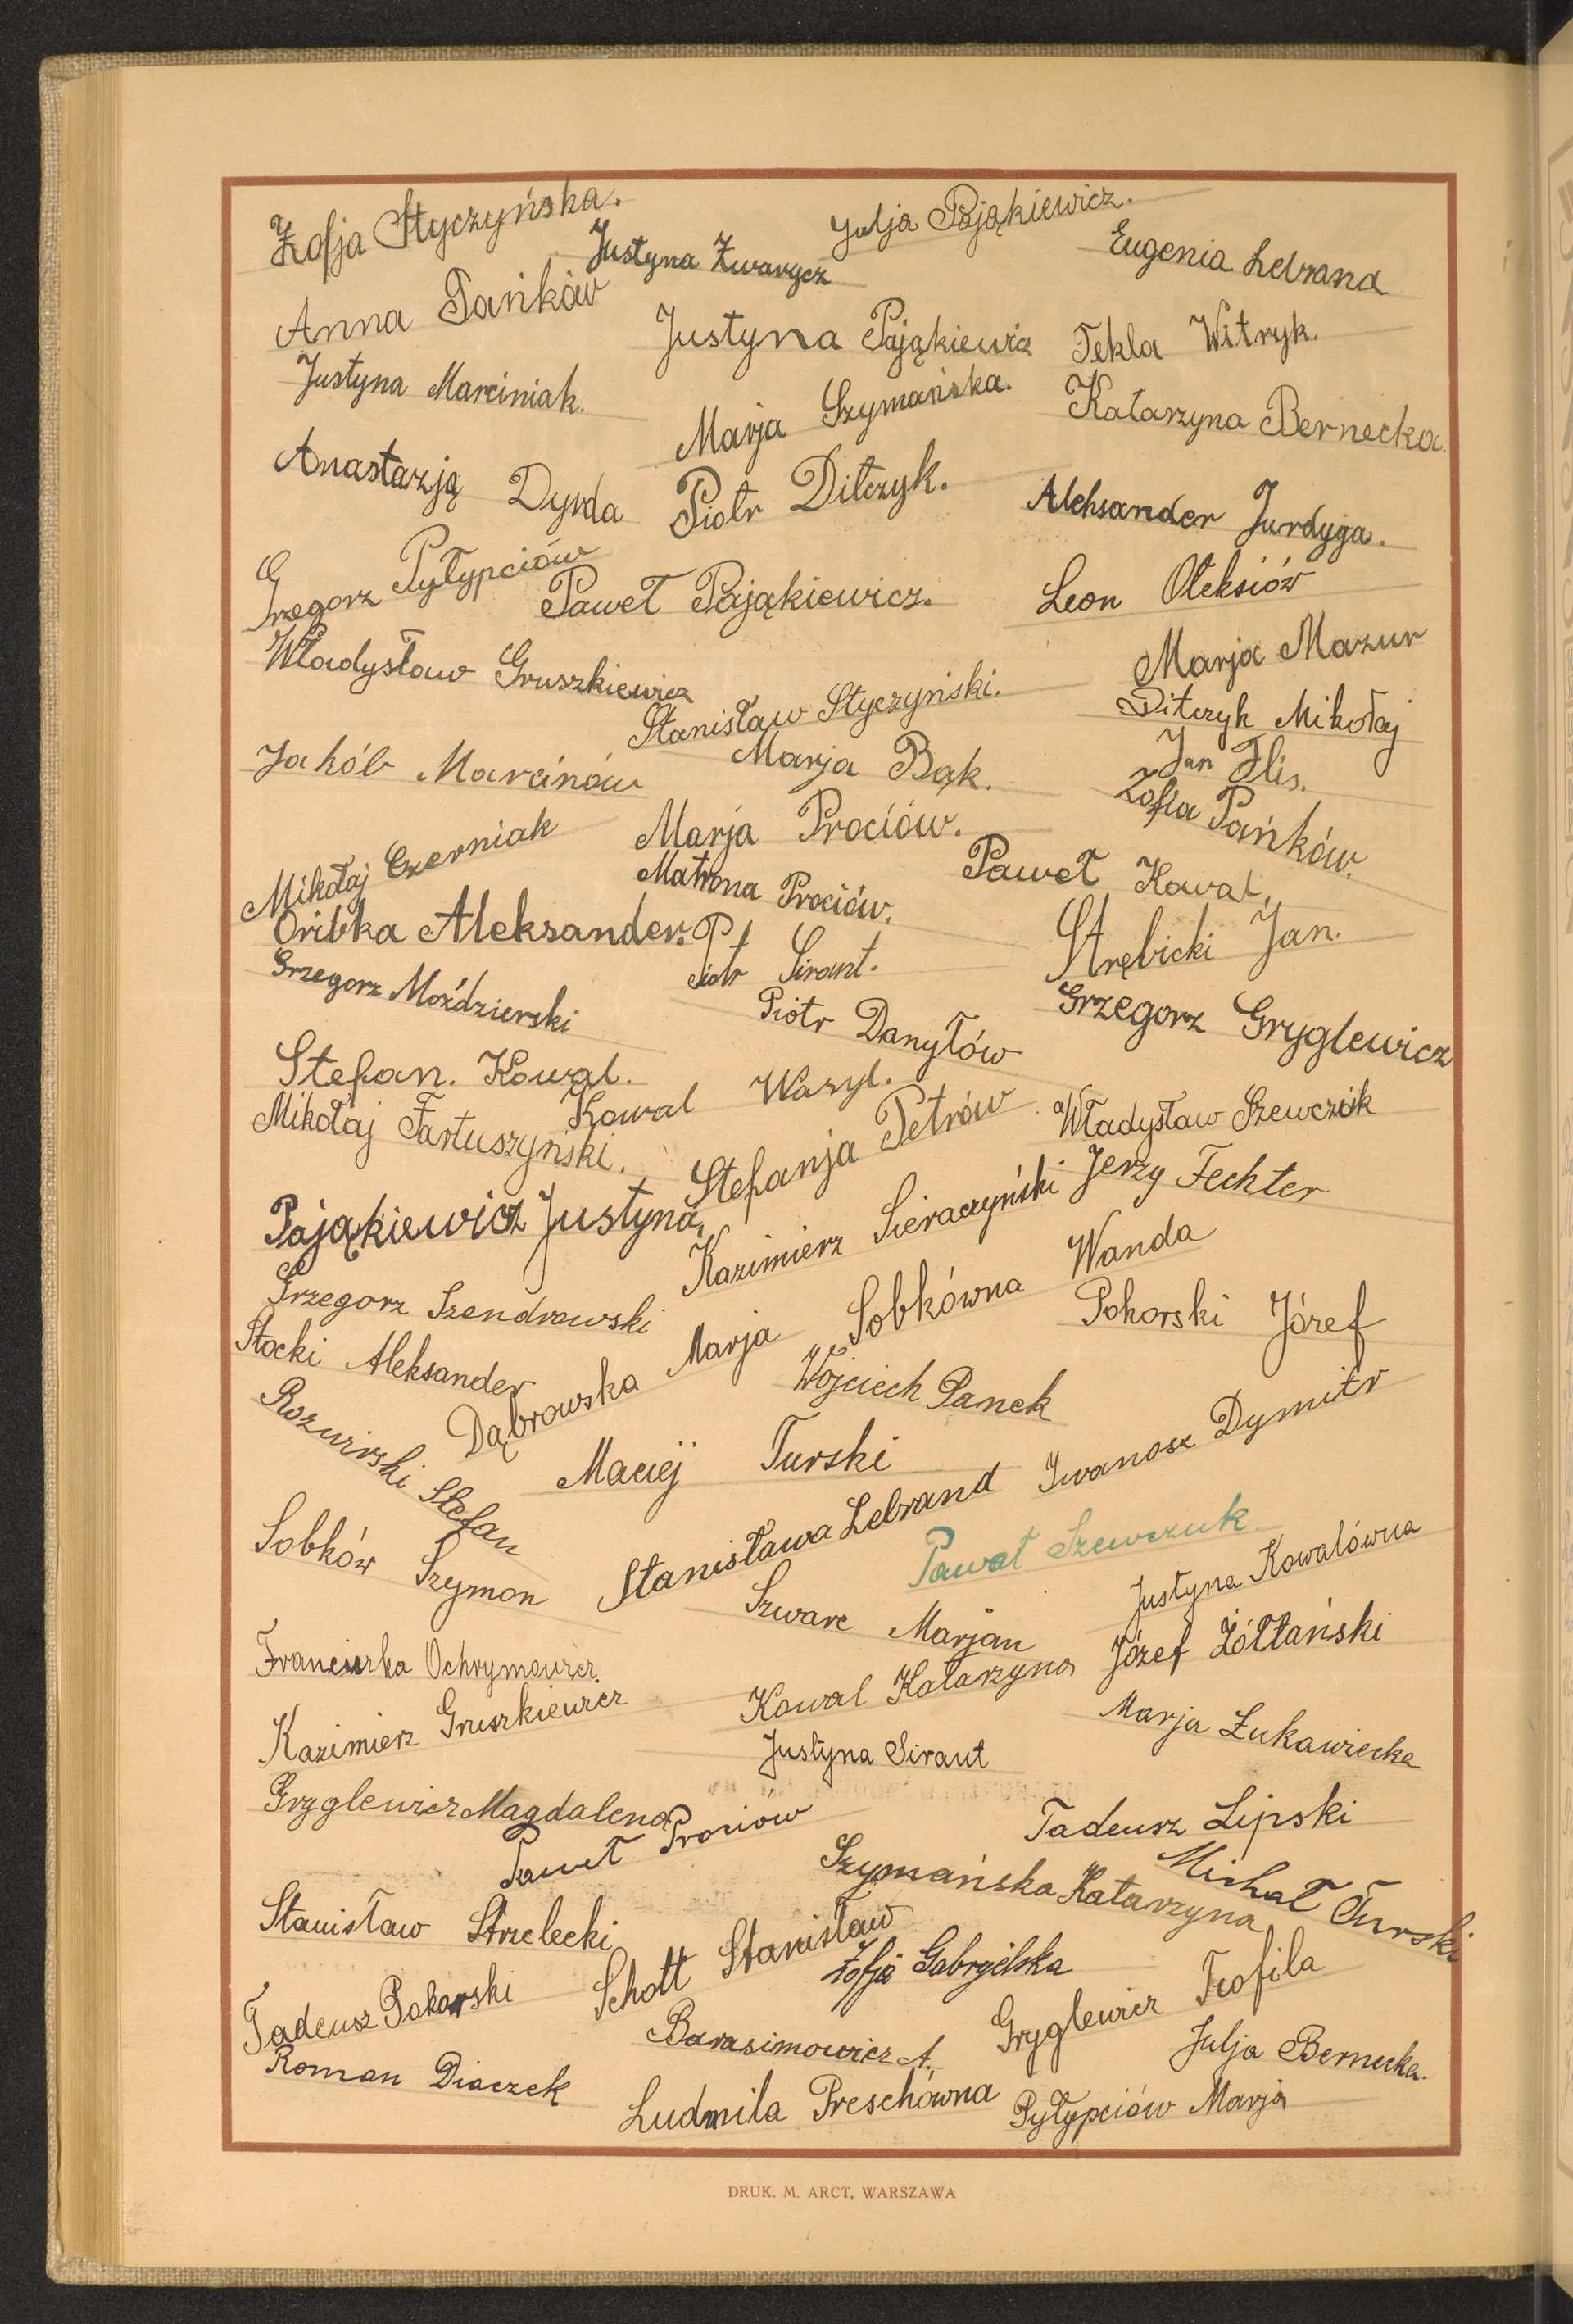 Zofja Styczyńska.
Justyna Zwarycz
Julja Pająkiewicz.
Eugenia Lebrand
Anna Pańków
Justyna Pająkiewicz
Tekla Witryk.
Justyna Marciniak.
Marja Szymańska.
Katarzyna Bernecka.
Anastazją Dyrda
Piotr Ditczyk.
Aleksander Jurdyga.
Grzegorz Pyłypciów
Paweł Pająkiewicz.
Leon Oleksiów
Władysław Gruszkiewicz
Stanisław Styczyński.
Marja Mazur
Ditczyk Mikołaj
Jakób Marcinów
Marja Bąk.
Jan Flis.
Zofia Pańków.
Mikołaj Czerniak
Marja Prociów.
Matrona Prociów.
Paweł Kowal.
Oribka Aleksander.
Piotr Sirant.
Strębicki Jan.
Grzegorz Moździerski
Piotr Danyłów
Grzegorz Gryglewicz
Stefan. Kowal.
Kowal Wasyl.
Mikołaj Fartuszyński.
Stefanja Petrów
Władysław Szewczuk
Pająkiewicz Justyna,
Kazimierz Sieraczyński
Jerzy Fechter
Grzegorz Szendrowski
Sobkówna Wanda
Stocki Aleksander
Dąbrowska Marja
Pokorski Józef
Wojciech Panek
Stefan
Maciej Turski
Iwanosz Dymitr
Sobków Szymon
Stanisława Lebrand
Paweł Szewczuk
Szwarc Marjan
Justyna Kowalówna
Franciszka Ochrymowicz
Kowal Katarzyna
Józef Żółtański
Kazimierz Gruszkiewicz
Justyna Sirant
Marja Łukawiecka
Gryglewicz Magdalena
Paweł Prociów
Tadeusz Lipski
Michał Turski
Szymańska Katarzyna
Stanisław Strzelecki
Schott Stanisław
Zofja Gabryelska
Tadeusz Pokorski
Barasimowicz A.
Gryglewicz Teofila
Julja Bernecka.
Roman Diaczek
Ludmila Preschówna
Pyłypciów Marja
DRUK. M. ARCT, WARSZAWA